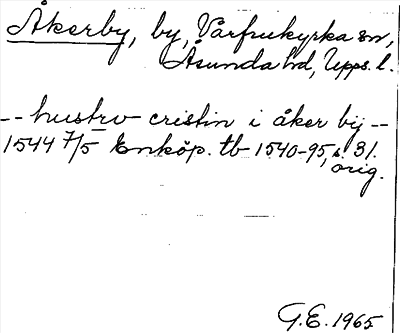 Åkerby, by, Vårfrukyrka sn,
Åsunda hd, Upps. l.
-- hustrv cristin i åker bij --
1544 7/5 Enköp. tb 1540-95, s. 31.
orig.
G.E. 1965